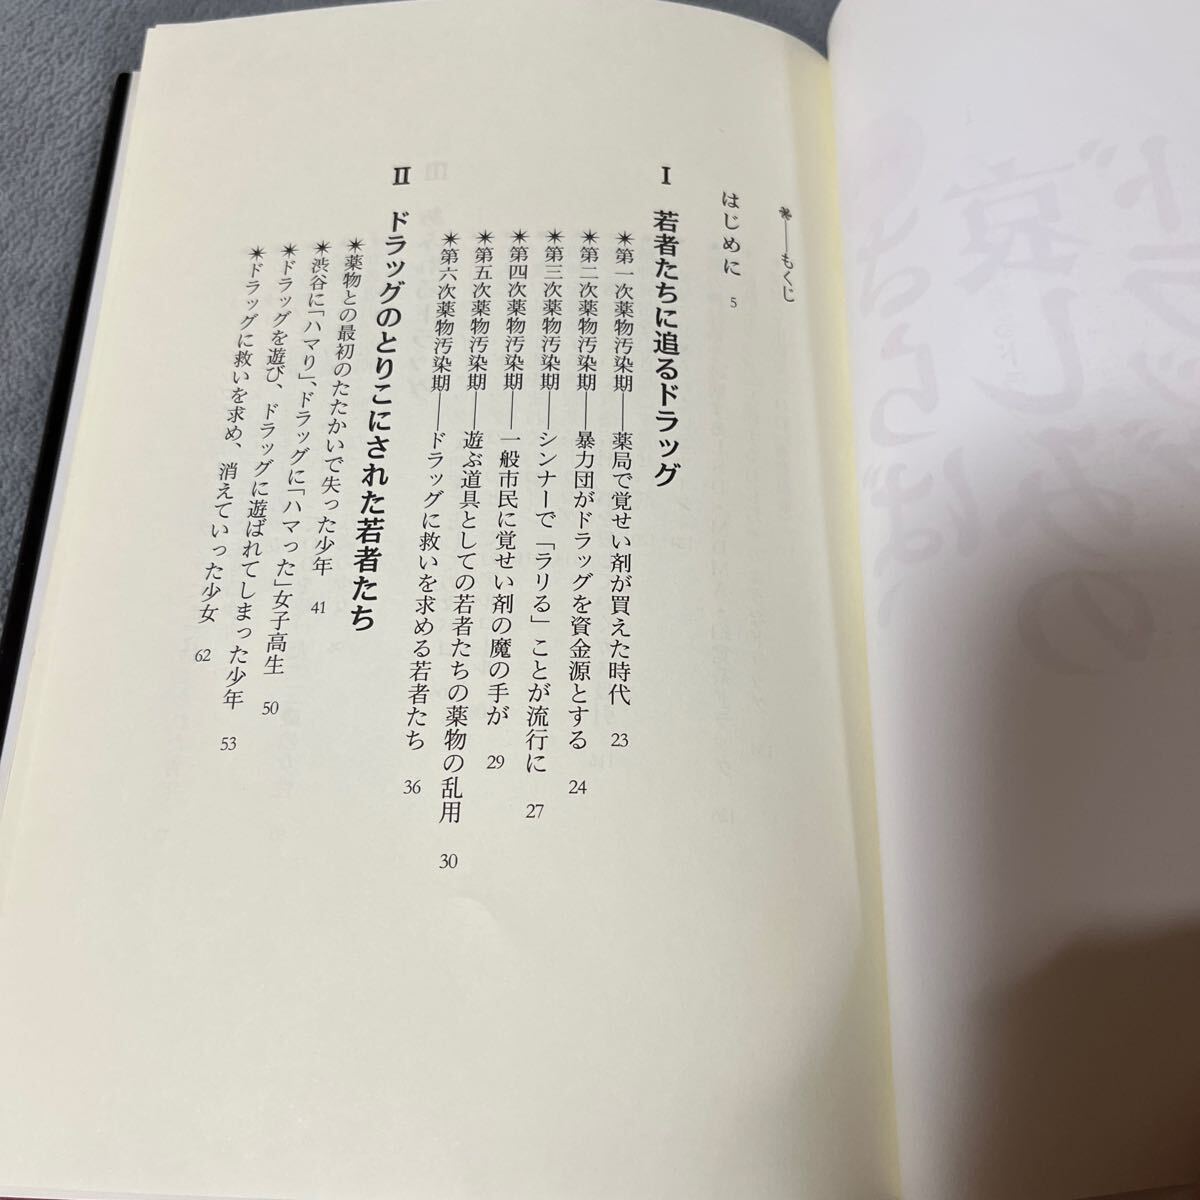 ❀――もくじ
はじめに 5
Ⅰ 若者たちに迫るドラッグ
✴第一次薬物汚染期――薬局で覚せい剤が買えた時代 23
✴第二次薬物汚染期――暴力団がドラッグを資金源とする 24
✴第三次薬物汚染期――シンナーで「ラリる」ことが流行に 27
✴第四次薬物汚染期――一般市民に覚せい剤の魔の手が 29
✴第五次薬物汚染期――遊ぶ道具としての若者たちの薬物の乱用 30
✴第六次薬物汚染期――ドラッグに救いを求める若者たち 36
Ⅱ ドラッグのとりこにされた若者たち
✴薬物との最初のたたかいで失った少年 41
✴渋谷に「ハマり」、ドラッグに「ハマった」女子高生 50
✴ドラッグを遊び、ドラッグに遊ばれてしまった少年 53
✴ドラッグに救いを求め、消えていった少女 62